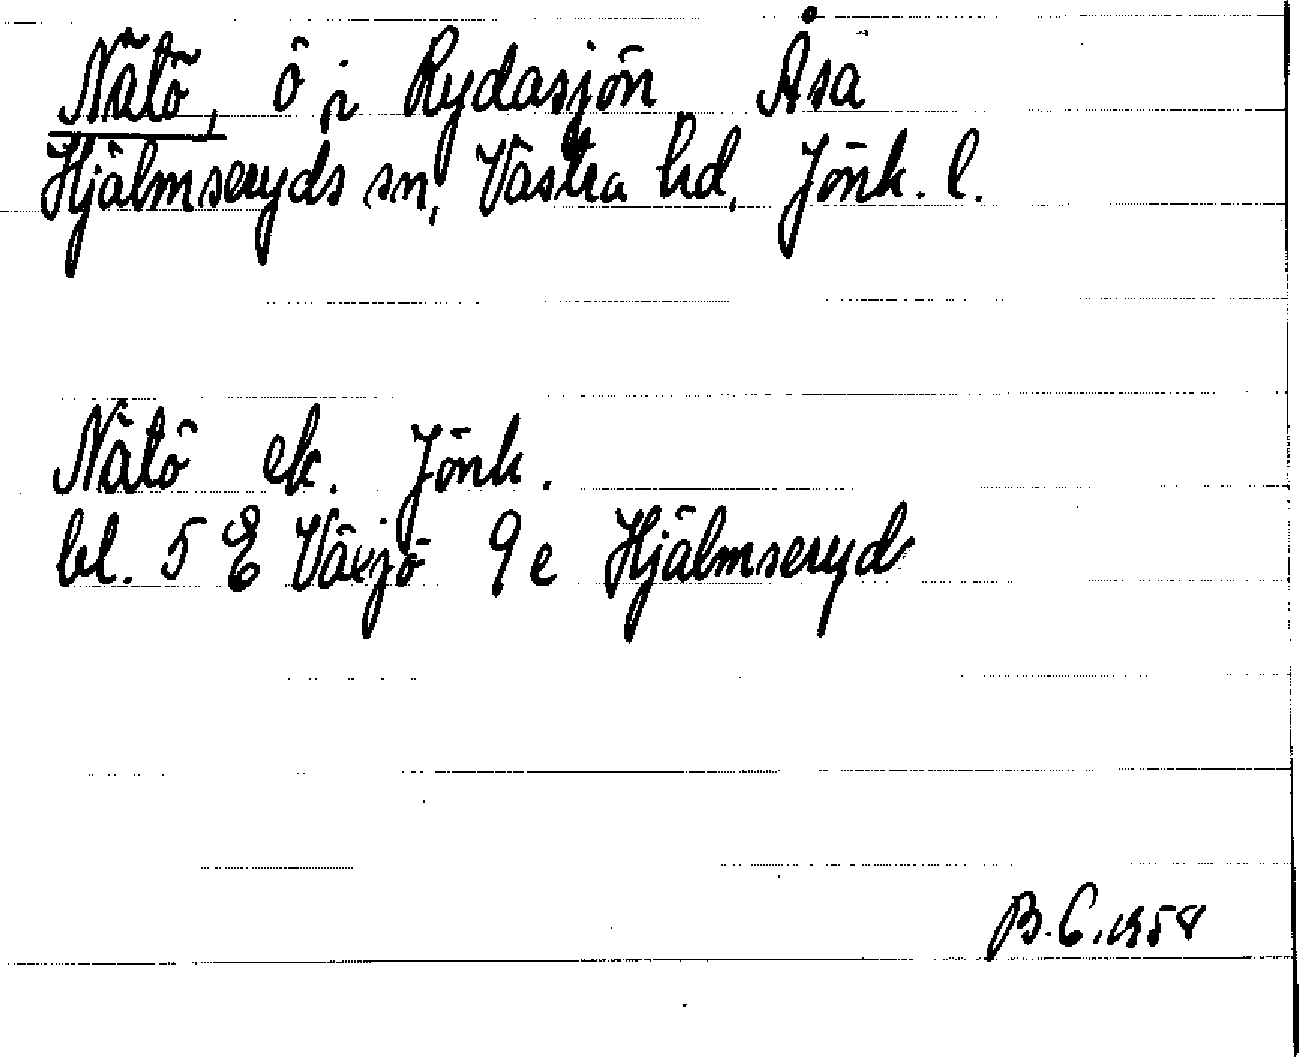 Nätö, ö i Rydasjön Åsa
Hjälmseryds sn, Västra hd, Jönk. l.
Nätö ek. Jönk.
bl. 5 E Växjö 9 e Hjälmseryd
B.C. 1958